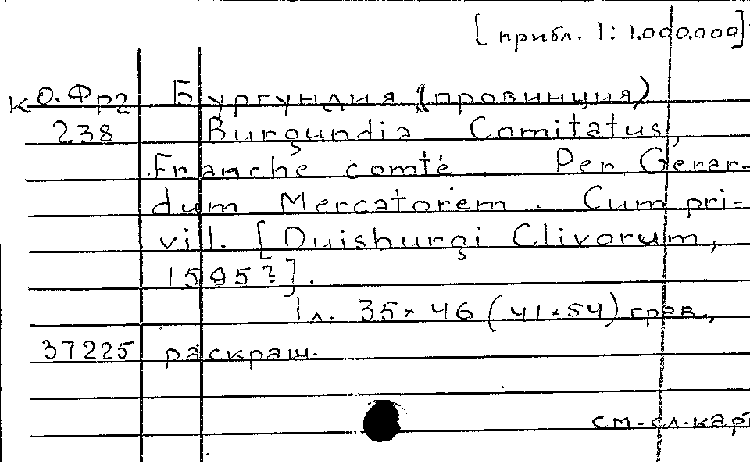 [прибл. 1:1.000.000]
К О.Фр2 Бургундия (провинция)
238 Burgundia Comitatus,
Franche comté. Per Gerar-
dum Mercatorem. Cum pri-
vill. [Duisburgi Clivorum,
1595?].
1 л. 35×46 (41×54) грав.,
37225 раскраш.
см. сл. карт